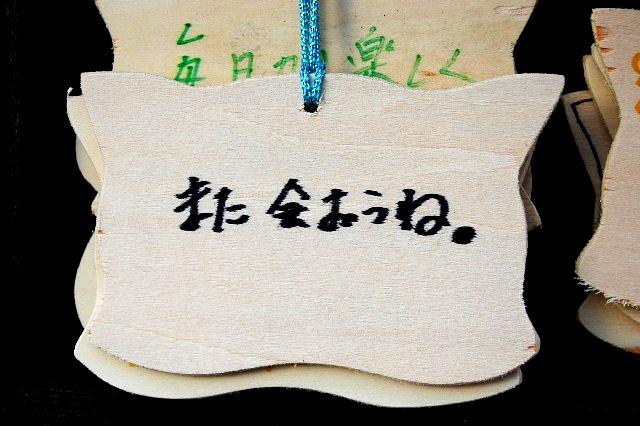 毎日が楽しく
また会おうね。